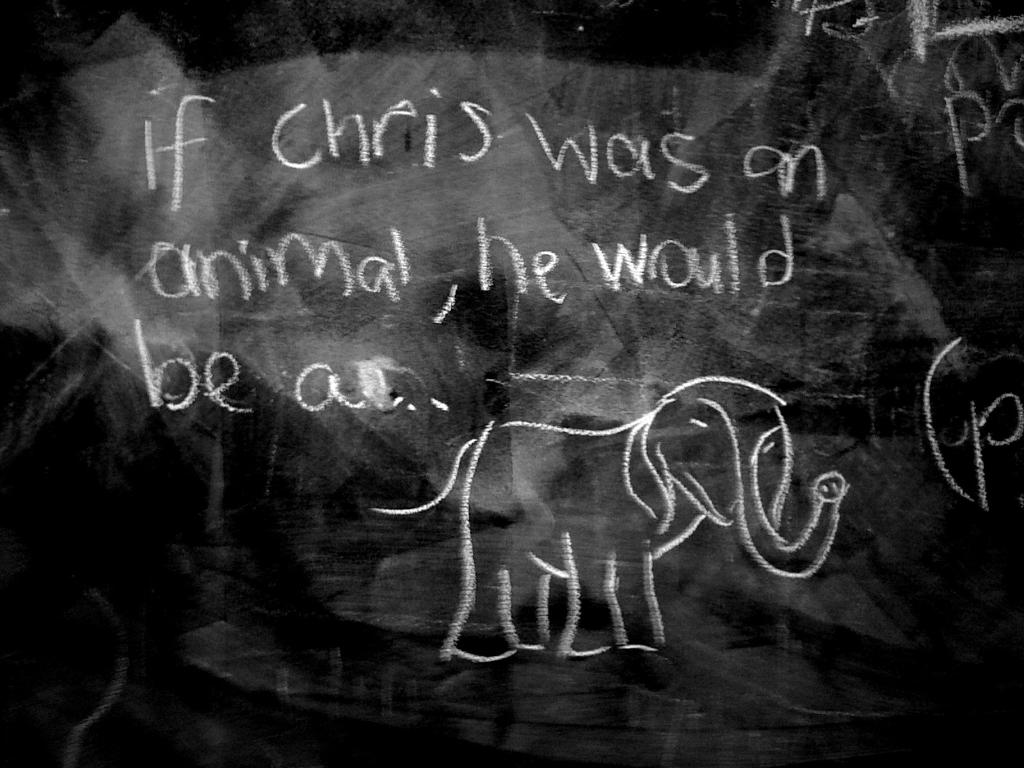 if Chris was an
animal, he would
be a...